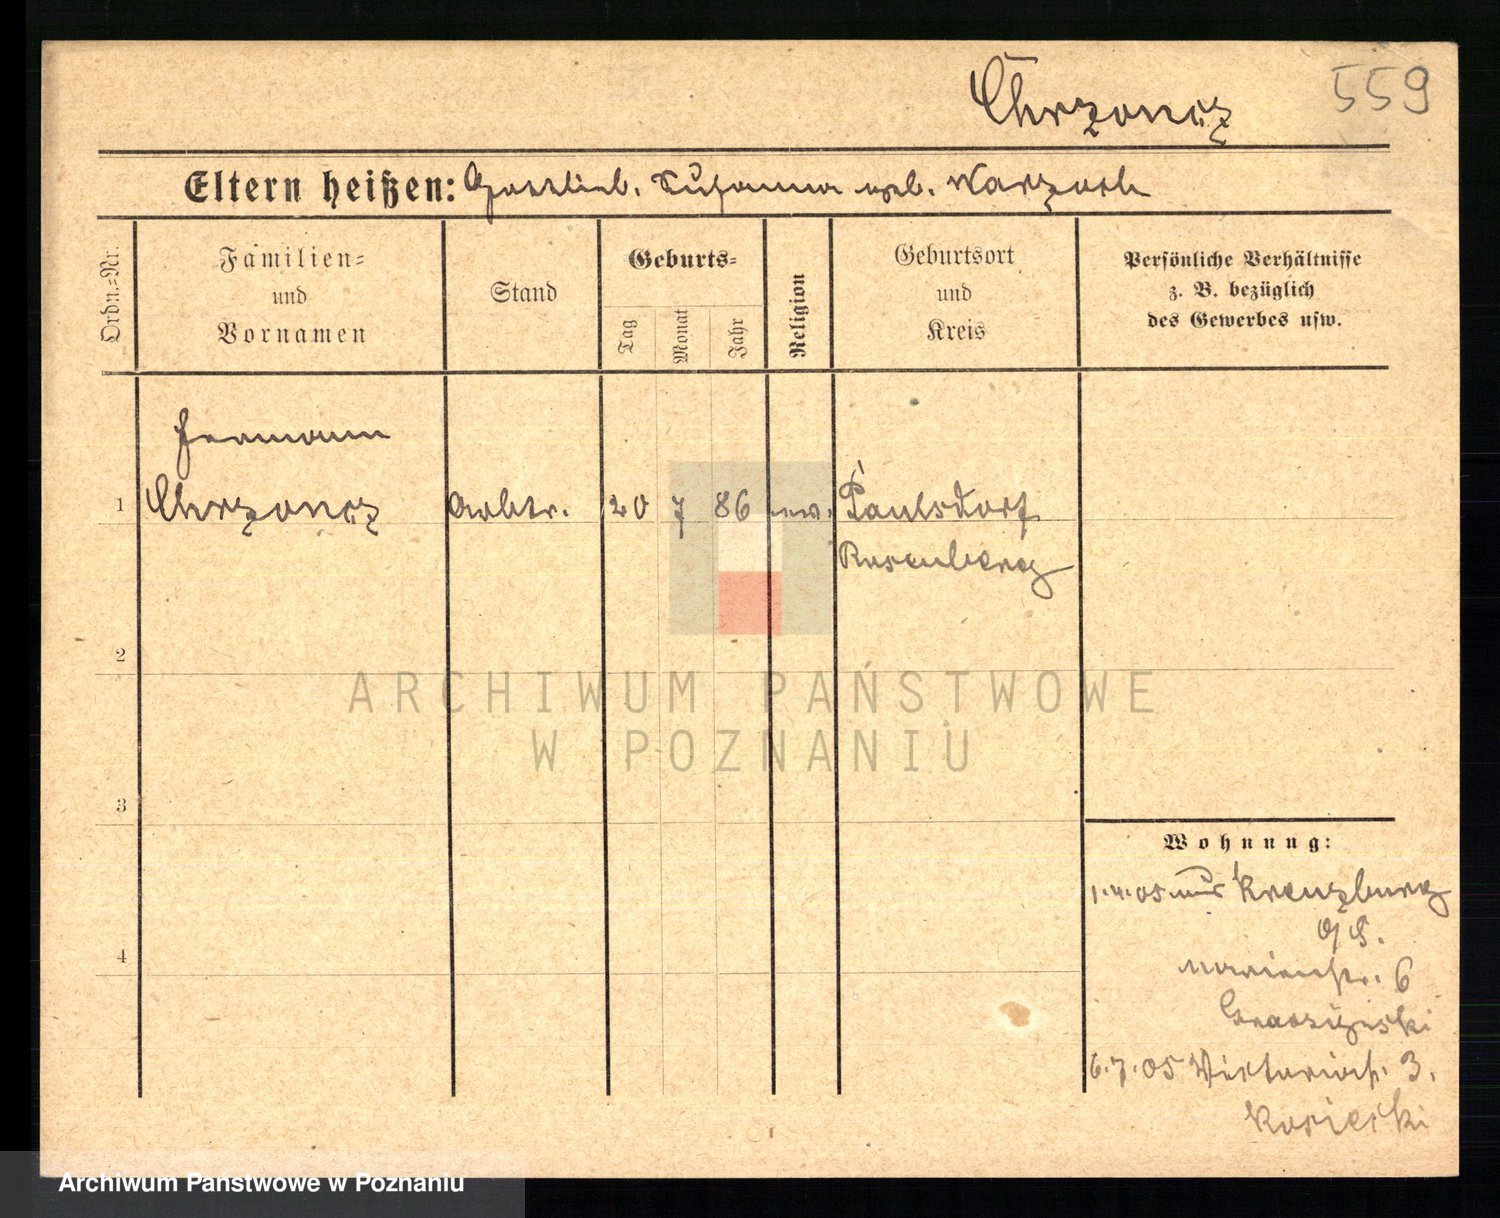 Chrzonciz
559
Eltern heißen: Gottlieb. Susanna geb. Warzech
Ordn.-Nr.
Familien-
und
Vornamen
Stand
Geburts-
Tag
Monat
Jahr
Religion
Geburtsort
und
Kreis
Persönliche Verhältnisse
z. B. bezüglich
des Gewerbes usw.
Hermann
1 Arbtr. 20 7 86 ev. Paulsdorf
Rosenberg
2
3
4
Wohnung:
1.4.05 aus Kreuzburg
O/S.
Marienstr. 6
6.7.05 Viktoriastr. 3.
Kosicki
ARCHIWUM PAŃSTWOWE
W POZNANIU
Archiwum Państwowe w Poznaniu